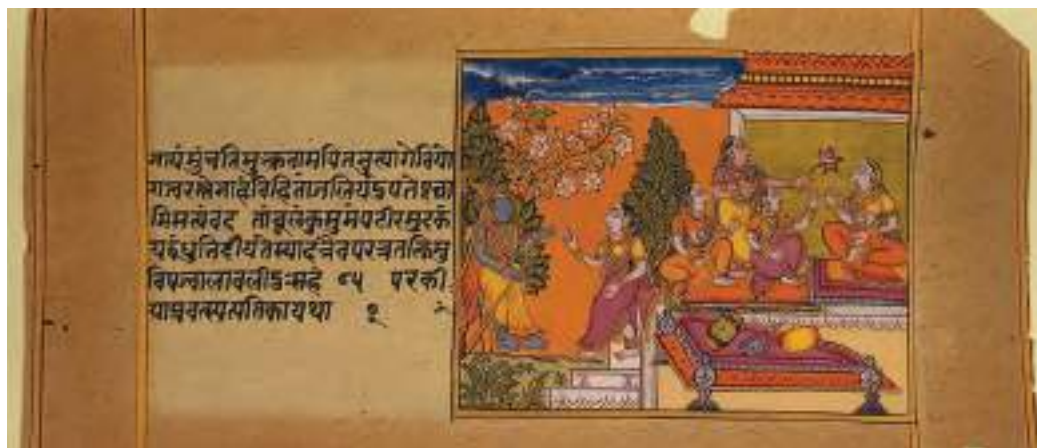 नायंमुंचतिसुभ्रुवामपितनुत्यागेवियो
गज्वरस्तेनाहंविहितांजलिर्यदुपतेपृच्छा
मिसत्यंवद तांबूलंकुसुमंपटीरमुदकं
यद्बंधुभिर्दीयतेस्यादत्रेवपरत्रतत्किमु
विषज्वालावलीदुःसहं ९५ परकी
याप्रवत्स्यत्पतिकायथा